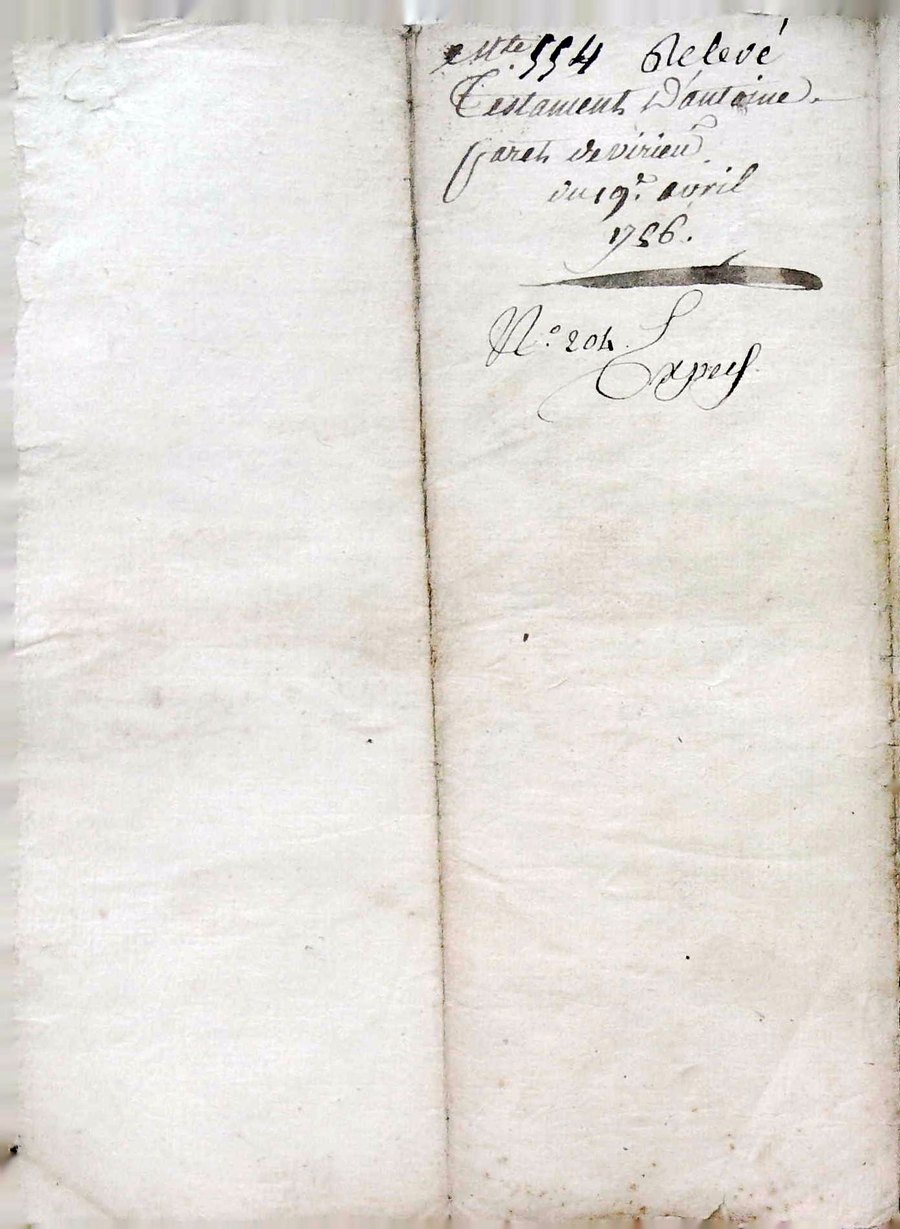 554 Relevé
Testament D'antoine
garet de virieu
du 19e. avril
1756.
N.o 204.
Exped